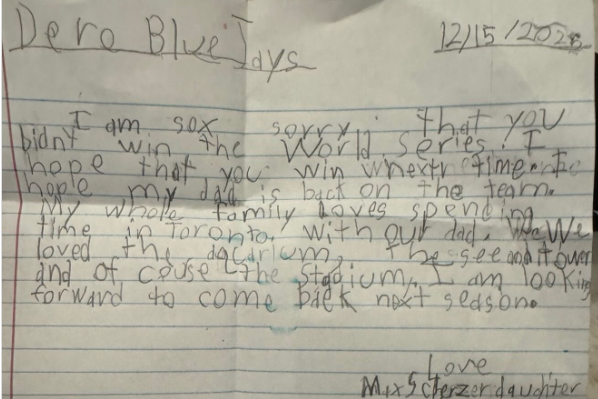 Dero Blue Jays 12/15/2025
I am sox sorry that you
bidnt win the World Series. I
hope that you win wnextr time. I
hople my dad is back on the team.
My whole family Loves spending
time in Toronto. With our dad. We
loved the aqcarium, the see and it ower
and of couse the stadium. I am looking
forward to come back next season.
Love
Max Scherzer daughter